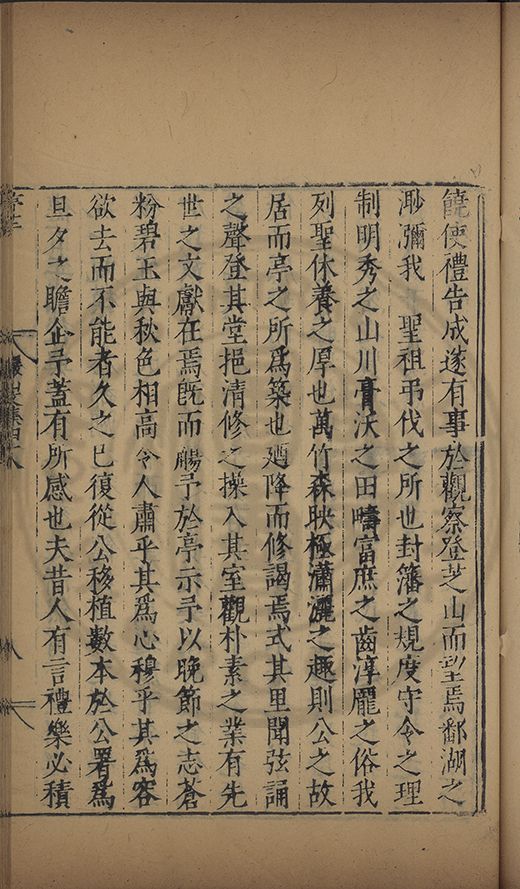 饒使禮告成遂有事於觀察登芝山而望焉鄱湖之
渺瀰我　聖祖弔伐之所也封籓之規度守令之理
制明秀之山川膏沃之田疇富庶之齒淳龎之俗我
列聖休養之厚也萬竹森映極瀟灑之趣則公之故
居而亭之所爲築也廼降而修謁焉式其里聞弦誦
之聲登其堂挹清修之操入其室觀朴素之業有先
世之文獻在焉旣而觴予於亭示予以晚節之志蒼
粉碧玉與秋色相高令人肅乎其爲心穆乎其爲容
欲去而不能者久之已復從公移植數本於公署爲
旦夕之瞻企予蓋有所感也夫昔人有言禮樂必積